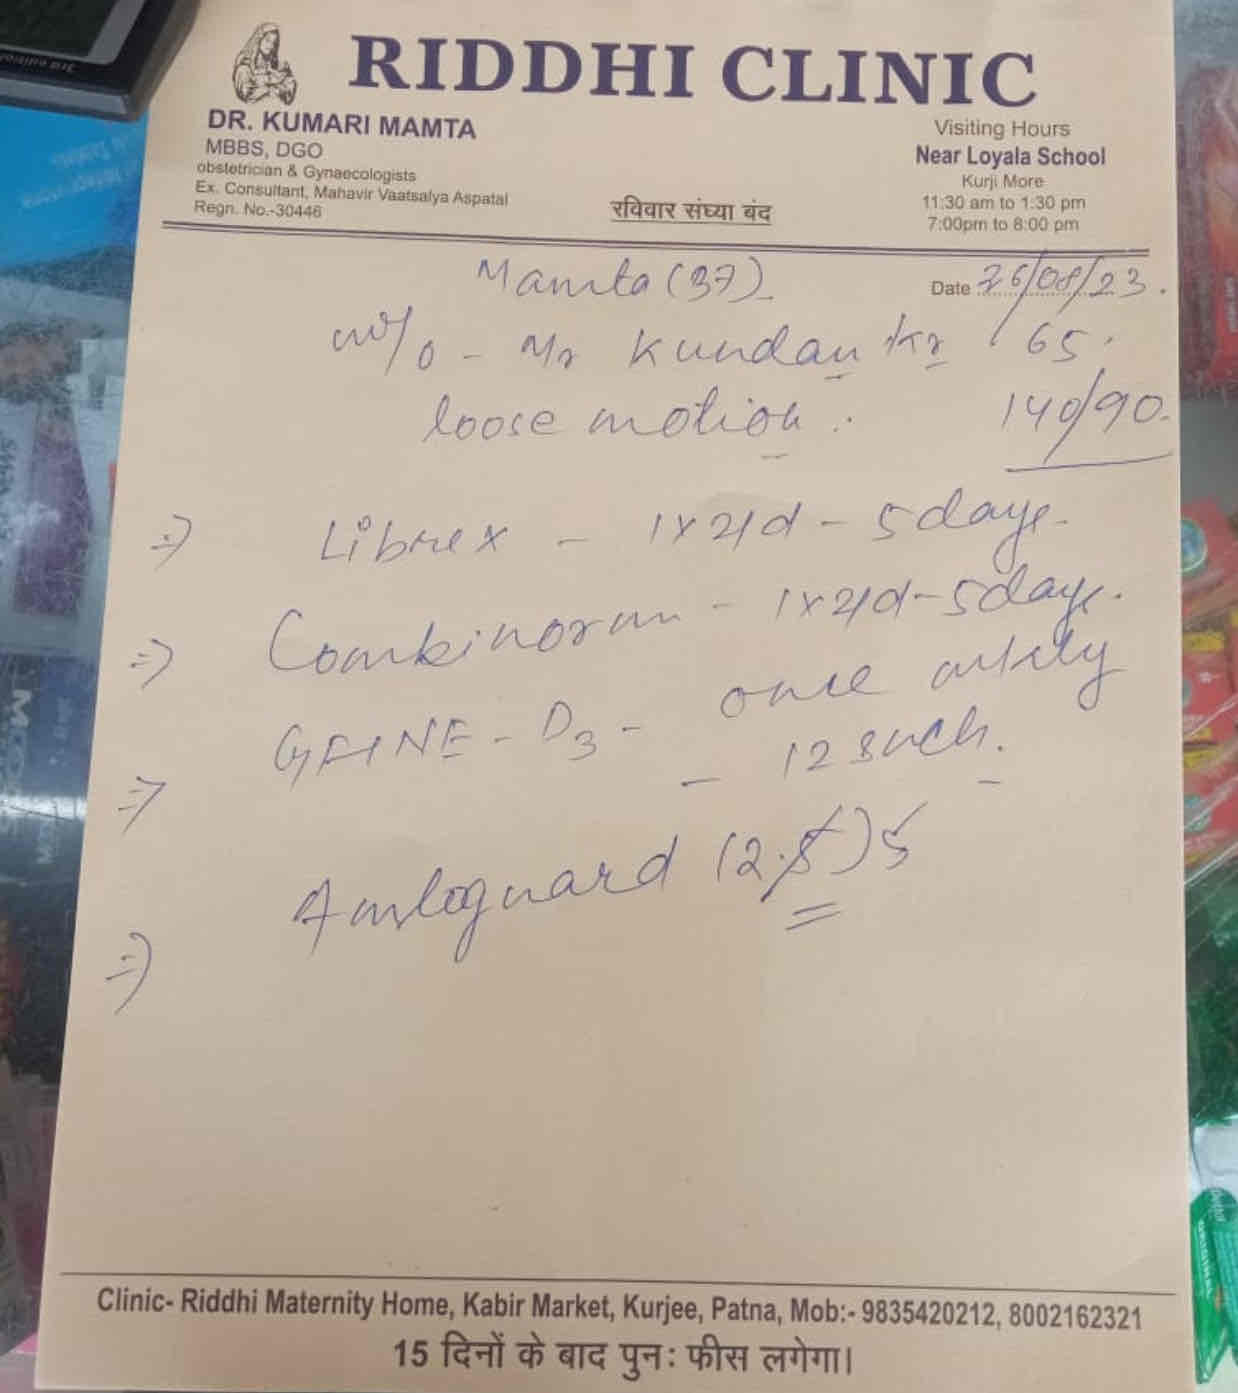 RIDDHI CLINIC
DR. KUMARI MAMTA
MBBS, DGO
obstetrician & Gynaecologists
Ex. Consultant, Mahavir Vaatsalya Aspatal
Regn. No.-30446
रविवार संघ्या बंद
Visiting Hours
Near Loyala School
Kurji More
11:30 am to 1:30 pm
7:00pm to 8:00 pm
Mamta (37)
Date 26/08/23.
w/o - Mr Kundan Kr 65.
loose motion. 140/90
⇒ Librex - 1x2/d - 5 days.
⇒ Combinorm - 1x2/d - 5 days.
⇒ - D3 - once
- 12 such.
⇒ Amloguard (2.5) 5
Clinic- Riddhi Maternity Home, Kabir Market, Kurjee, Patna, Mob:- 9835420212, 8002162321
15 दिनों के बाद पुनः फीस लगेगा।